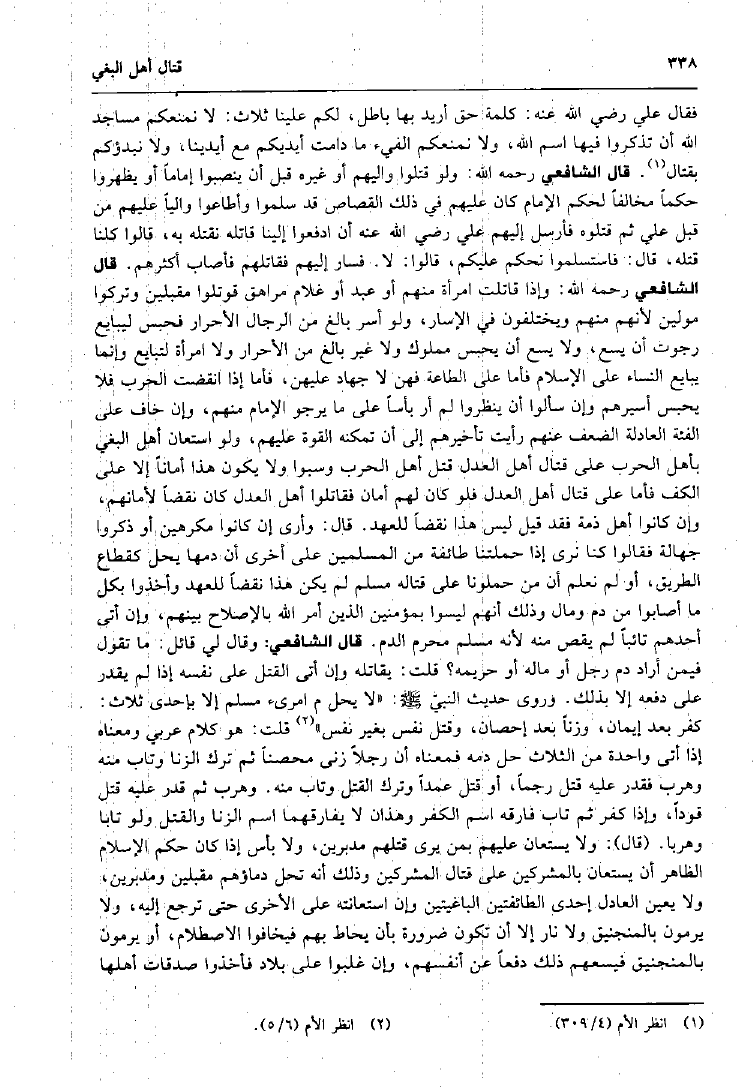 ٣٣٨
قتال أهل البغي
فقال علي رضي الله عنه: كلمة حق أريد بها باطل، لكم علينا ثلاث: لا نمنعكم مساجد
الله أن تذكروا فيها اسم الله، ولا نمنعكم الفيء ما دامت أيديكم مع أيدينا، ولا نبدؤكم
بقتال(١). قال الشافعي رحمه الله: ولو قتلوا واليهم أو غيره قبل أن ينصبوا إماماً أو يظهروا
حكماً مخالفاً لحكم الإمام كان عليهم في ذلك القصاص قد سلموا وأطاعوا والياً عليهم من
قبل علي ثم قتلوه فأرسل إليهم علي رضي الله عنه أن ادفعوا إلينا قاتله نقتله به، قالوا كلنا
قتله، قال: فاستسلموا نحكم عليكم، قالوا: لا. فسار إليهم فقاتلهم فأصاب أكثرهم. قال
الشافعي رحمه الله: وإذا قاتلت امرأة منهم أو عبد أو غلام مراهق قوتلوا مقبلين وتركوا
مولين لأنهم منهم ويختلفون في الإسار، ولو أسر بالغ من الرجال الأحرار فحبس ليبايع
رجوت أن يسع، ولا يسع أن يحبس مملوك ولا غير بالغ من الأحرار ولا امرأة لتبايع وإنما
يبايع النساء على الإسلام فأما على الطاعة فهن لا جهاد عليهن، فأما إذا انقضت الحرب فلا
يحبس أسيرهم وإن سألوا أن ينظروا لم أر بأساً على ما يرجو الإمام منهم، وإن خاف على
الفئة العادلة الضعف عنهم رأيت تأخيرهم إلى أن تمكنه القوة عليهم، ولو استعان أهل البغي
بأهل الحرب على قتال أهل العدل قتل أهل الحرب وسبوا ولا يكون هذا أماناً إلا على
الكف فأما على قتال أهل العدل فلو كان لهم أمان فقاتلوا أهل العدل كان نقضاً لأمانهم،
وإن كانوا أهل ذمة فقد قيل ليس هذا نقضاً للعهد. قال: وأرى إن كانوا مكرهين أو ذكروا
جهالة فقالوا كنا نرى إذا حملتنا طائفة من المسلمين على أخرى أن دمها يحل كقطاع
الطريق، أو لم نعلم أن من حملونا على قتاله مسلم لم يكن هذا نقضاً للعهد وأخذوا بكل
ما أصابوا من دم ومال وذلك أنهم ليسوا بمؤمنين الذين أمر الله بالإصلاح بينهم، وإن أتى
أحدهم تائباً لم يقص منه لأنه مسلم محرم الدم. قال الشافعي: وقال لي قائل: ما تقول
فيمن أراد دم رجل أو ماله أو حريمه؟ قلت: يقاتله وإن أتى القتل على نفسه إذا لم يقدر
على دفعه إلا بذلك. وروى حديث النبيّ ﷺ: «لا يحل م امرىء مسلم إلا بإحدى ثلاث:
كفر بعد إيمان، وزناً بعد إحصان، وقتل نفس بغير نفس»(٢) قلت: هو كلام عربي ومعناه
إذا أتى واحدة من الثلاث حل دمه فمعناه أن رجلاً زنى محصناً ثم ترك الزنا وتاب منه
وهرب فقدر عليه قتل رجماً، أو قتل عمداً وترك القتل وتاب منه. وهرب ثم قدر عليه قتل
قوداً، وإذا كفر ثم تاب فارقه اسم الكفر وهذان لا يفارقهما اسم الزنا والقتل ولو تابا
وهربا. (قال): ولا يستعان عليهم بمن يرى قتلهم مدبرين، ولا بأس إذا كان حكم الإسلام
الظاهر أن يستعان بالمشركين على قتال المشركين وذلك أنه تحل دماؤهم مقبلين ومدبرين،
ولا يعين العادل إحدى الطائفتين الباغيتين وإن استعانته على الأخرى حتى ترجع إليه، ولا
يرمون بالمنجنيق ولا نار إلا أن تكون ضرورة بأن يحاط بهم فيخافوا الاصطلام، أو يرمون
بالمنجنيق فيسعهم ذلك دفعاً عن أنفسهم، وإن غلبوا على بلاد فأخذوا صدقات أهلها
(١) انظر الأم (٣٠٩/٤).
(٢) انظر الأم (٥/٦).